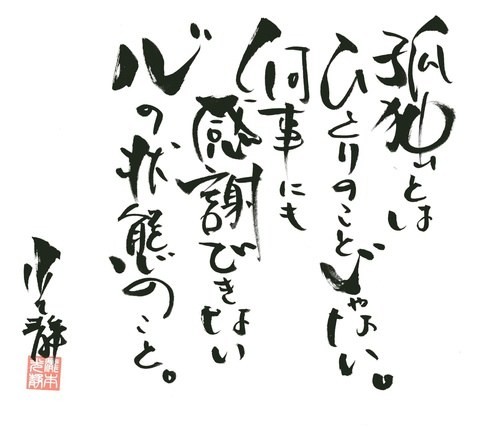 孤独とは
ひとりのことじゃない。
何事にも
感謝できない
心の状態のこと。